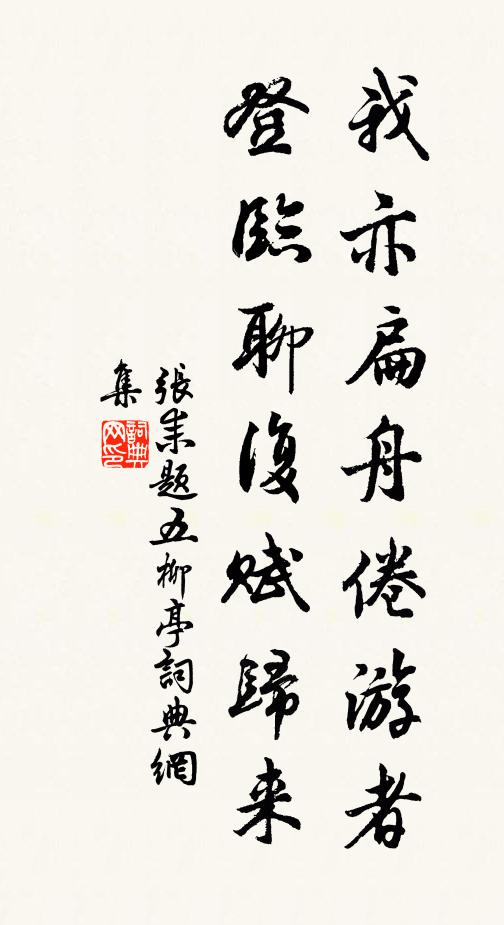 我亦扁舟倦游者
登臨聊復賦歸来
張耒題五柳亭詞典網
集
詞典网印